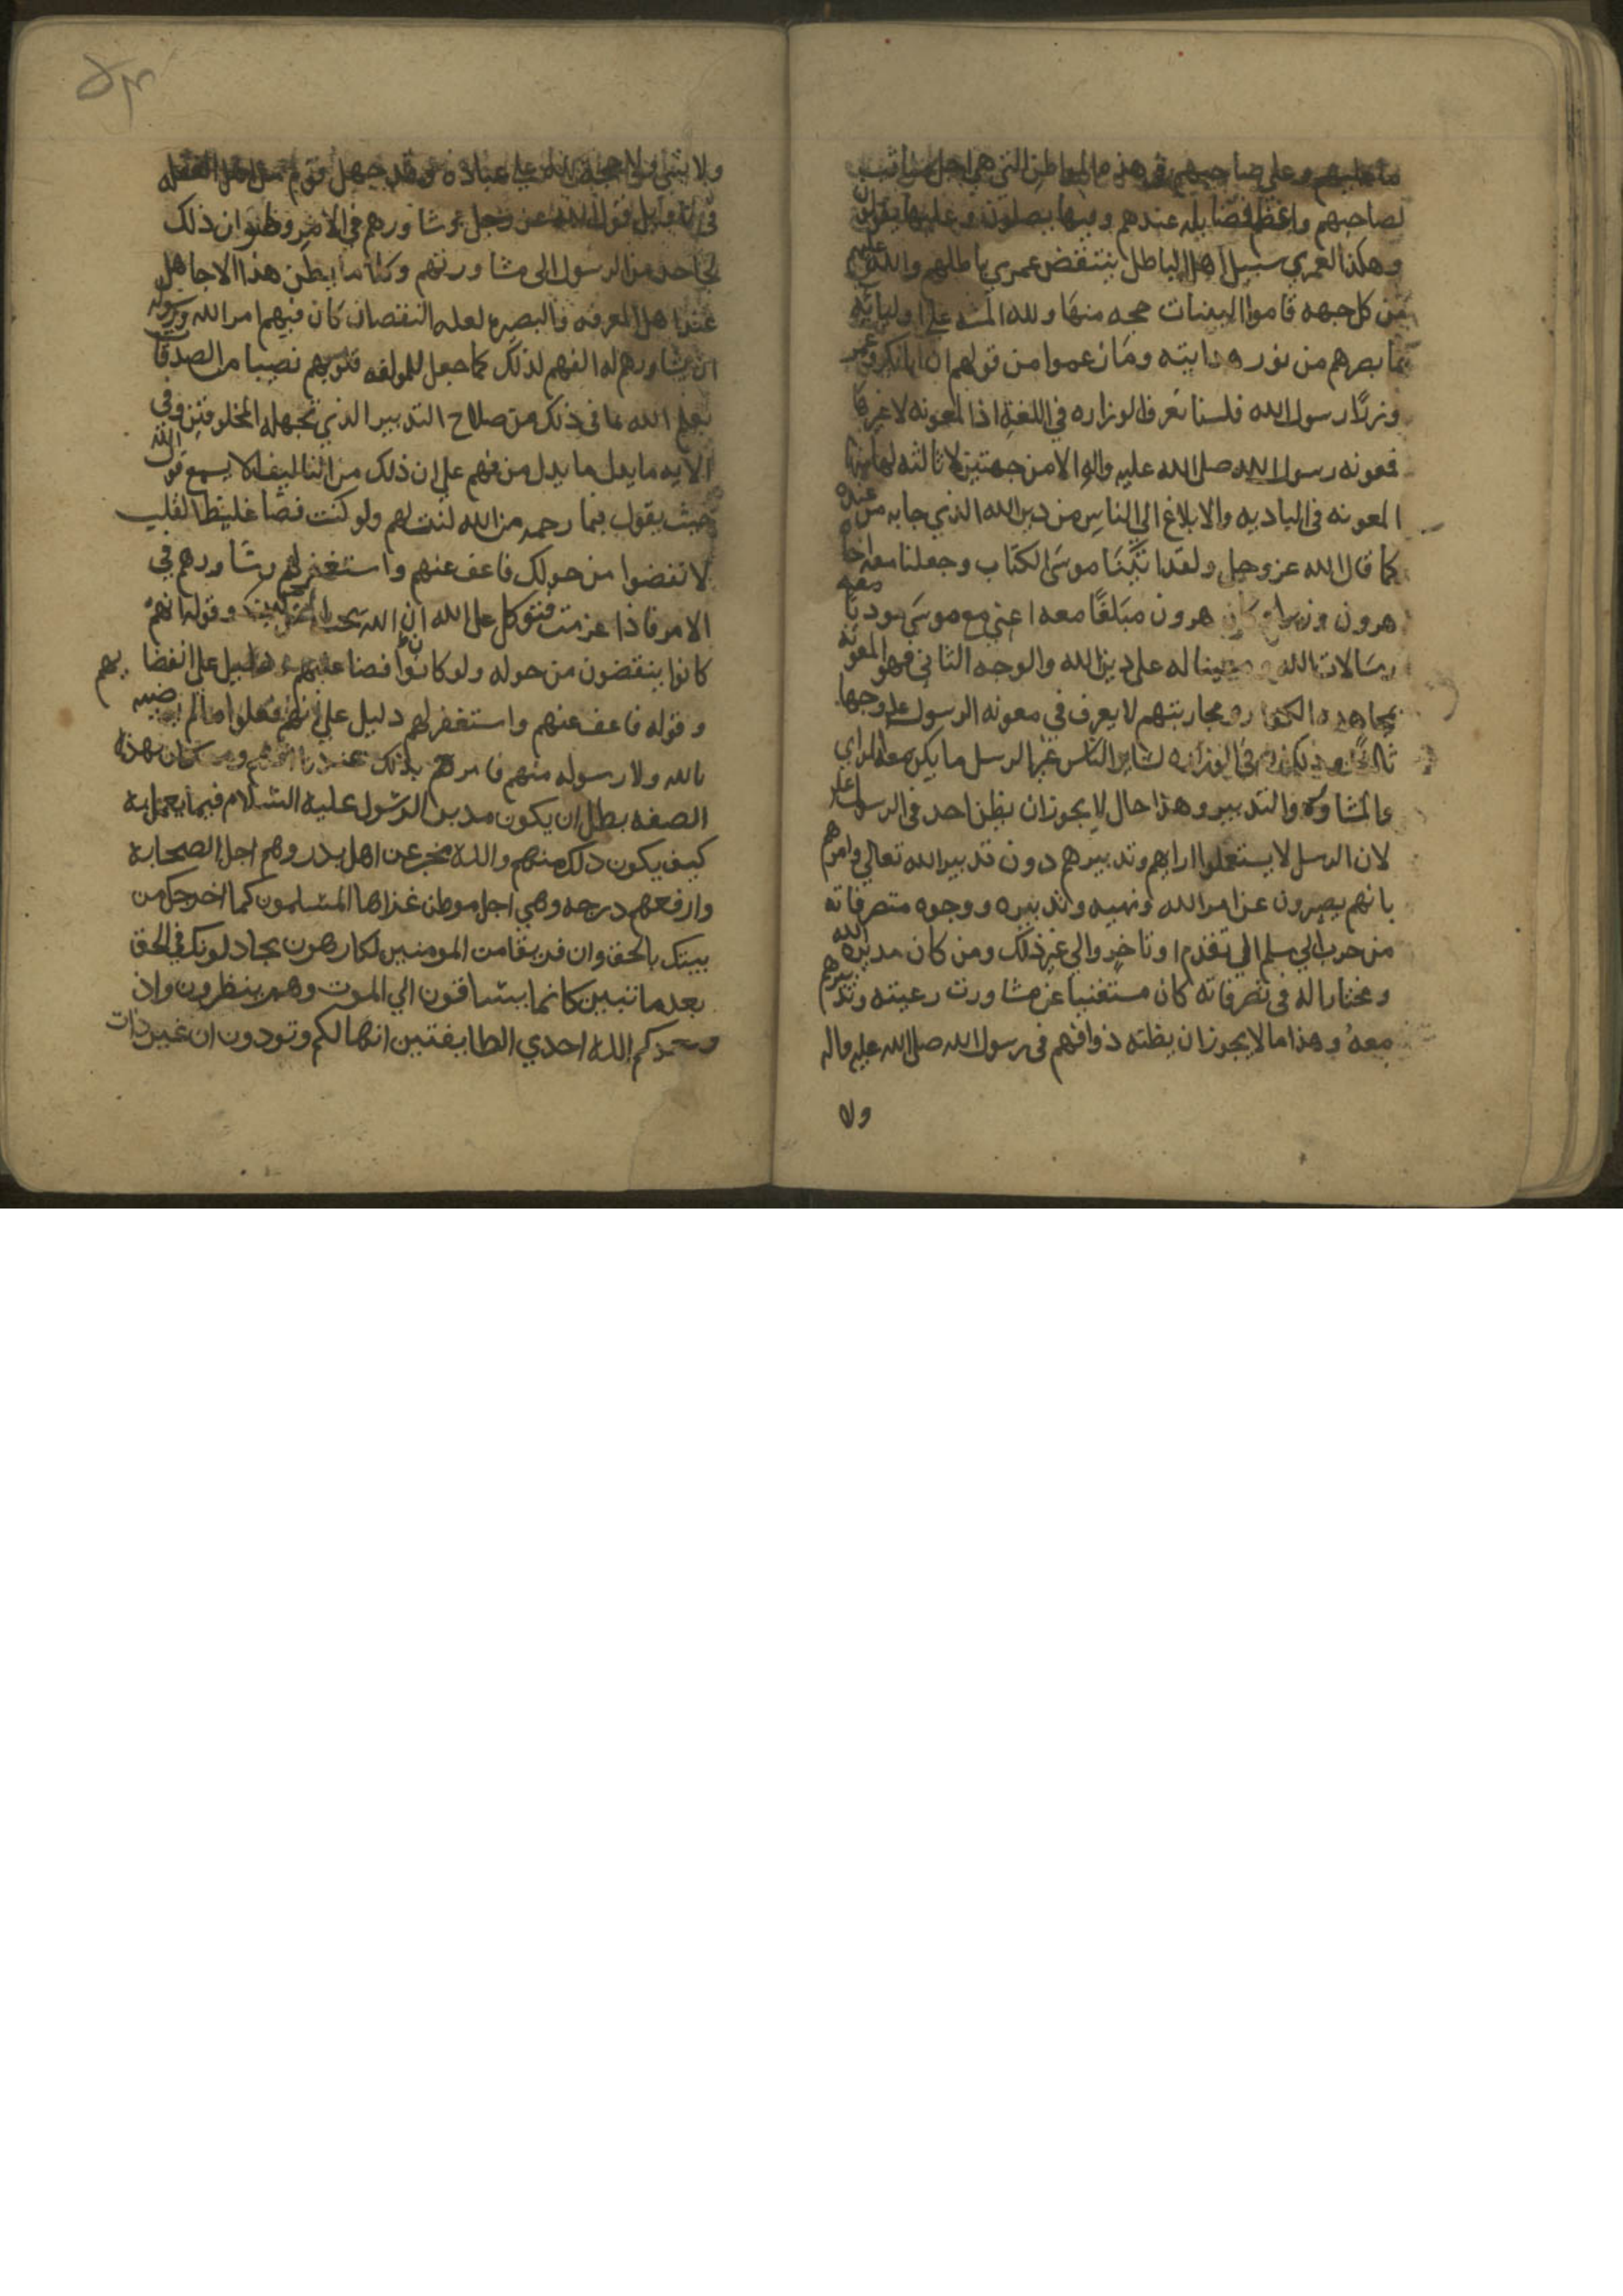 ما عليهم وعلي صاحبهم في هذه المواطن التي هي اجل مناقب
لصاحبهم واعظم فضايله عندهم وبها يصلون وعليها يقولون
وهكذا لعمري سبيل اهل الباطل ينتقض عمري باطلهم والله عليهم
من كل جهه قاموا البينات حجه منها ولله المنه علي اوليايه
بما بصرهم من نوره هدايته وما زعموا من قولهم ان ابابكر وعمر
وزيرا رسول الله فلسنا نعرف الوزاره في اللغة اذا المعونه لا غيرها
فمعونه رسول الله صلي الله عليه واله الا من جهتين لا ثالثه لهما منها
المعونه في الباديه والابلاغ الي الناس من دين الله الذي جا به من عنده
كما قال الله عز وجل ولقد اتينا موسى الكتاب وجعلنا معه اخاه
هرون وزيرا وكان هرون مبلغا معه اعني مع موسى يوديا معه
رسالات الله ومعينا له على دين الله والوجه الثاني فهو المعونه
بمجاهده الكفار ومحاربتهم لا يعرف في معونه الرسول عليه وجها
ثالثا وذلك في الوزاره لساير الناس غير الرسل ما يكن معه الراي
والمشاوره والتدبير وهذا حال لا يجوز ان يظن احد في الرسل عليه
لان الرسل لا يستعملوا ارايهم وتدبيرهم دون تدبير الله تعالي وامرهم
بانهم يصرون عن امر الله ونهيه وتدبيره ووجوه متصرفاته
من حرب الي سلم الي تقدم او تاخير والي غير ذلك ومن كان مدبره الله
ومختارا له في تصرفاته كان مستغنيا عن مشاورت رعيته وتدبيرهم
معه وهذا ما لا يجوز ان يظنه ذوا فهم في رسول الله صلي الله عليه واله
ولا
٥٣
ولا علي عباده وقد جهل قوم من اهل الغفله
في تاويل قول الله عز وجل وشاورهم في الامر وظنوا ان ذلك
لحاجه من الرسول الى مشاورتهم وكذا ما يظن هذا الا جاهل
عند اهل المعرفه والبصيره لعله النقصان كان فيهم امر الله ورسوله
ان يشاورهم له الفهم لذلك كما جعل للمولفه قلوبهم نصيبا من الصدقات
بعلم الله بما في ذلك من صلاح التدبير الذي تجهله المخلوقين وفي
الايه ما يدل ما يدل من فهم علي ان ذلك من التاليف الا يسمع قول الله
حيث يقول فبما رحمه من الله لنت لهم ولو كنت فضا غليظ القلب
لانفضوا من حولك فاعف عنهم واستغفر لهم وشاورهم في
الامر فاذا عزمت فتوكل على الله ان الله يحب المتوكلين وقوله انهم
كانوا ينفضون من حوله ولو كان فضا عليهم دليل على انفضاضهم
وقوله فاعف عنهم واستغفر لهم دليل على انهم فعلوا ما لم يرضيه
بالله ولا رسوله منهم فامرهم بذلك ومن كان بهذه
الصفه بطل ان يكون مدبر الرسول عليه السلام فيما يعمل به
كيف يكون ذلك منهم والله مخبر عن اهل بدر وهم اجل الصحابة
وارفعهم درجه وهي اجل موطن غزاها المسلمون كما اخرجك من
بيتك بالحق وان فريقا من المومنين لكارهون يجادلونك في الحق
بعد ما تبين كانما يساقون الي الموت وهم ينظرون واذ
يعدكم الله احدي الطايفتين انها لكم وتودون ان غير ذات